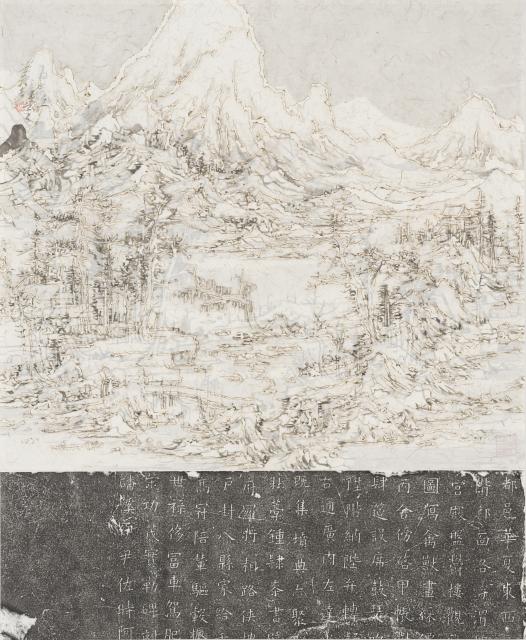 都邑華夏東西
背邙面洛浮渭
宮殿盤鬱樓觀
圖寫禽獸畫綵
丙舍傍啓甲帳
肆筵設席鼓瑟
陞階納陛弁轉
右通廣內左達
既集墳典亦聚
杜稾鍾隸漆書
府羅將相路俠
戶封八縣家給千
高冠陪輦驅轂
世祿侈富車駕肥
功茂實勒碑刻
磻溪伊尹佐時阿